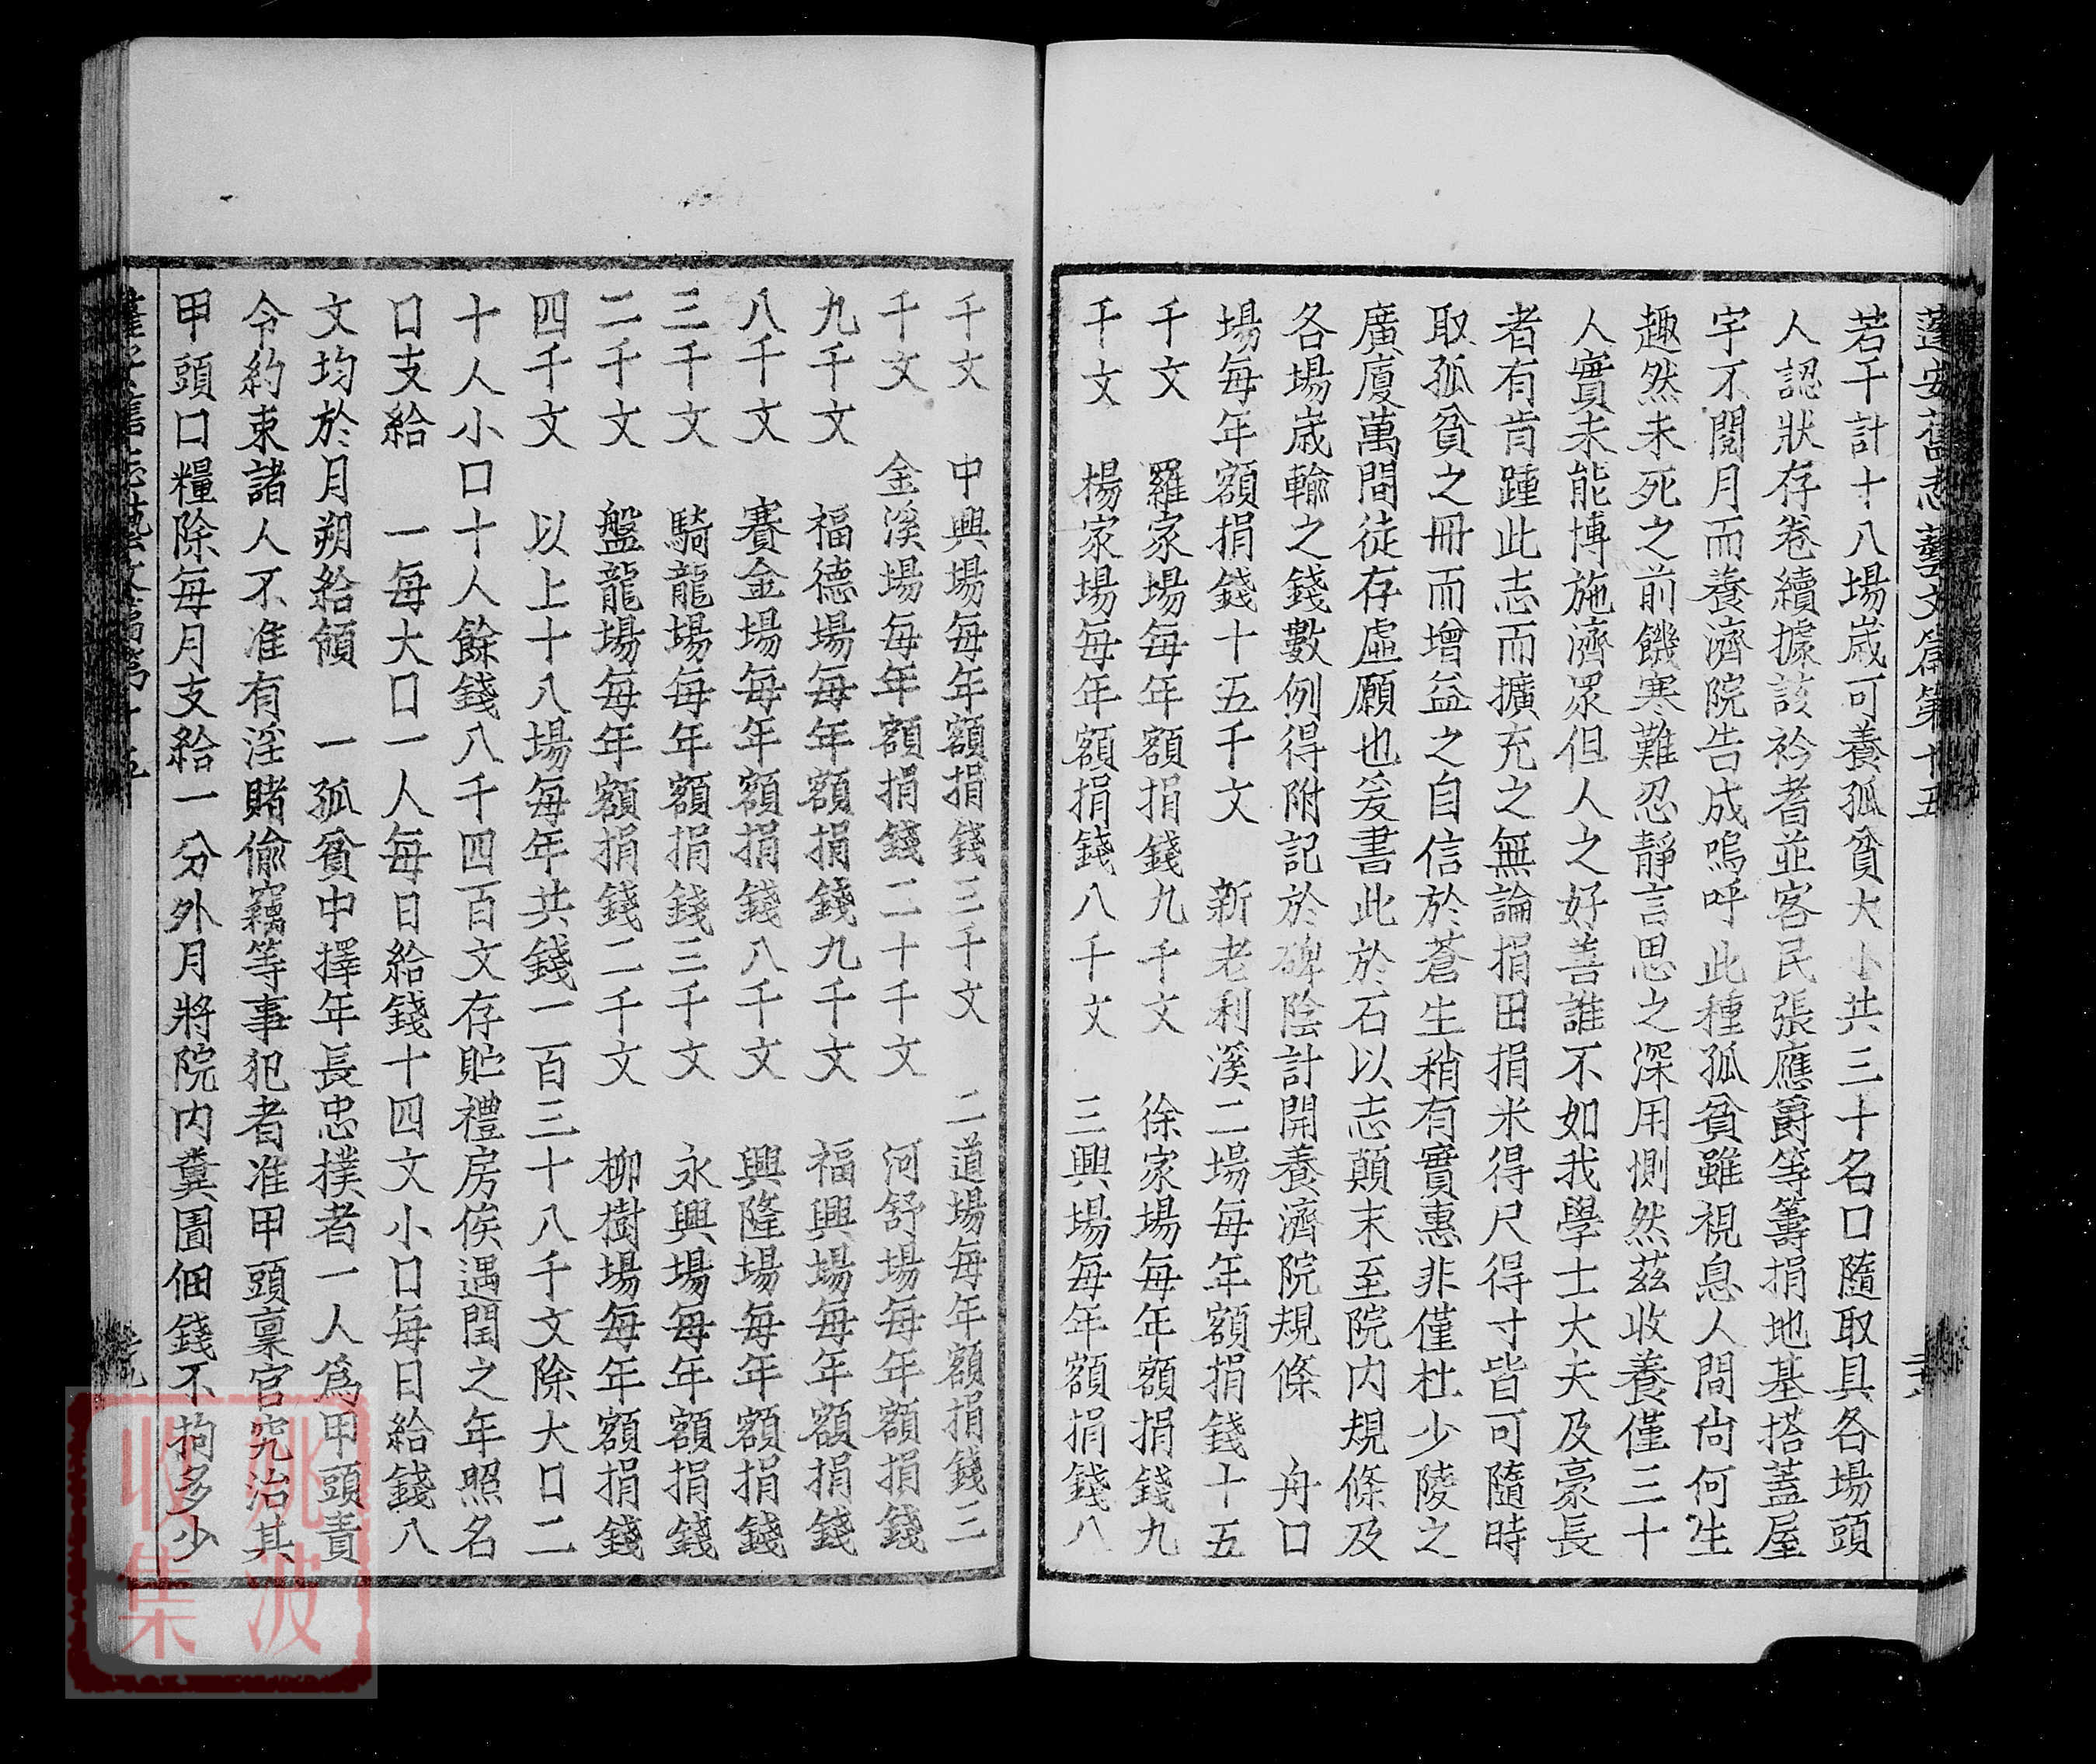 蓬安舊志藝文篇第十五
若干計十八場歲可養孤貧大小共三十名口隨取具各場頭
人認狀存卷續據該衿耆並客民張應爵等籌捐地基搭蓋屋
宇不閱月而養濟院告成嗚呼此種孤貧雖視息人間尙何生
趣然未死之前饑寒難忍靜言思之深用惻然茲收養僅三十
人實未能博施濟眾但人之好善誰不如我學士大夫及豪長
者有肯踵此志而擴充之無論捐田捐米得尺得寸皆可隨時
取孤貧之冊而增益之自信於蒼生稍有實惠非僅杜少陵之
廣廈萬間徒存虛願也爰書此於石以志顛末至院內規條及
各場歲輸之錢數例得附記於碑陰計開養濟院規條　舟口
場每年額捐錢十五千文　新老利溪二場每年額捐錢十五
千文　羅家場每年額捐錢九千文　徐家場每年額捐錢九
千文　楊家場每年額捐錢八千文　三興場每年額捐錢八
千文　中興場每年額捐錢三千文　二道場每年額捐錢三
千文　金溪場每年額捐錢二十千文　河舒場每年額捐錢
九千文　福德場每年額捐錢九千文　福興場每年額捐錢
八千文　賽金場每年額捐錢八千文　興隆場每年額捐錢
三千文　騎龍場每年額捐錢三千文　永興場每年額捐錢
二千文　盤龍場每年額捐錢二千文　柳樹場每年額捐錢
四千文　以上十八場每年共錢一百三十八千文除大口二
十人小口十人餘錢八千四百文存貯禮房俟遇閏之年照名
口支給　一每大口一人每日給錢十四文小口每日給錢八
文均於月朔給領　一孤貧中擇年長忠撲者一人爲甲頭責
令約束諸人不准有淫賭偷竊等事犯者准甲頭稟官究治其
甲頭口糧除每月支給一分外月將院内糞圊佃錢不拘多少
姚波
收集